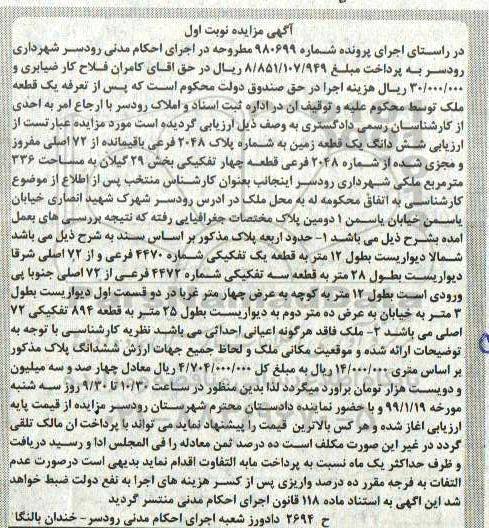 آگهی مزایده نوبت اول
در راستای اجرای پرونده شماره ۹۸۰۶۹۹ مطروحه در اجرای احکام مدنی رودسر شهرداری
رودسر به پرداخت مبلغ ۸/۸۵۱/۱۰۷/۹۴۹ ریال در حق اقای کامران فلاح کار ضیابری و
۳۰/۰۰۰/۰۰۰ ریال هزینه اجرا در حق صندوق دولت محکوم است که پس از تعرفه یک قطعه
ملک توسط محکوم علیه و توقیف ان در اداره ثبت اسناد و املاک رودسر با ارجاع امر به احدی
از کارشناسان رسمی دادگستری به وصف ذیل ارزیابی گردیده است مورد مزایده عبارتست از
ارزیابی شش دانگ یک قطعه زمین به شماره پلاک ۲۰۴۸ فرعی باقیمانده از ۷۲ اصلی مفروز
و مجزی شده از شماره ۲۰۴۸ فرعی قطعه چهار تفکیکی بخش ۲۹ گیلان به مساحت ۳۳۶
مترمربع ملکی شهرداری رودسر اینجانب بعنوان کارشناس منتخب پس از اطلاع از موضوع
کارشناسی به اتفاق محکومه له به محل ملک در ادرس رودسر شهرک شهید انصاری خیابان
یاسمن خیابان یاسمن ۱ دومین پلاک مختصات جغرافیایی رفته که نتیجه بررسی های بعمل
امده بشرح ذیل می باشد ۱- حدود اربعه پلاک مذکور بر اساس سند به شرح ذیل می باشد
شمالا دیواریست بطول ۱۲ متر به قطعه یک تفکیکی شماره ۴۴۷۰ فرعی و از ۷۲ اصلی شرقا
دیواریست بطول ۲۸ متر به قطعه سه تفکیکی شماره ۴۴۷۲ فرعی از ۷۲ اصلی جنوبا پی
ورودی است بطول ۱۲ متر به کوچه به عرض چهار متر غربا در دو قسمت اول دیواریست بطول
۳ متر به خیابان به عرض ده متر دوم به دیواریست بطول ۲۵ متر به قطعه ۸۹۴ تفکیکی ۷۲
اصلی می باشد ۲- ملک فاقد هرگونه اعیانی احداثی می باشد نظریه کارشناسی با توجه به
توضیحات ارائه شده و موقعیت مکانی ملک و لحاظ جمیع جهات ارزش ششدانگ پلاک مذکور
بر اساس متری ۱۴/۰۰۰/۰۰۰ ریال به مبلغ کل ۴/۷۰۴/۰۰۰/۰۰۰ ریال معادل چهار صد و سه میلیون
و دویست هزار تومان برآورد میگردد لذا بدین منظور در ساعت ۱۰/۳۰ تا ۹/۳۰ روز سه شنبه
مورخه ۹۹/۱/۱۹ و با حضور نماینده دادستان محترم شهرستان رودسر مزایده از قیمت پایه
ارزیابی اغاز شده و هر کس بالاترین قیمت را پیشنهاد نماید می تواند با پرداخت ان مالک تلقی
گردد در غیر این صورت مکلف است ده درصد ثمن معادله را فی المجلس ادا و رسید دریافت
و ظرف حداکثر یک ماه نسبت به پرداخت مابه التفاوت اقدام نماید بدیهی است درصورت عدم
التفات به فرجه مقرر ده درصد واریزی پس از کسر هزینه های اجرا به نفع دولت ضبط خواهد
شد این اگهی به استناد ماده ۱۱۸ قانون اجرای احکام مدنی منتسر گردید
ح ۲۶۹۴ دادورز شعبه اجرای احکام مدنی رودسر- خندان بالنگا